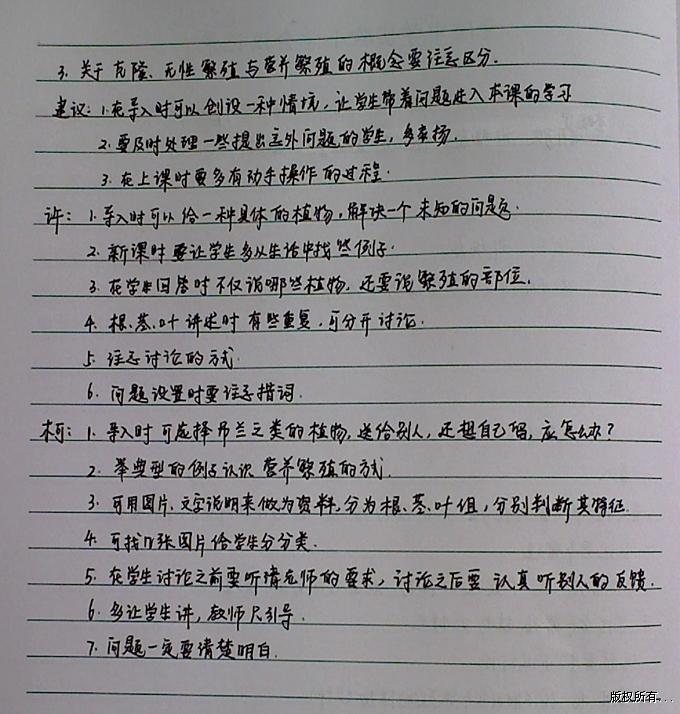 3. 关于克隆、无性繁殖与营养繁殖的概念要注意区分.
建议: 1.在导入时可以创设一种情境, 让学生带着问题进入本课的学习
2. 要及时处理一些提出意外问题的学生, 多表扬.
3. 在上课时要多有动手操作的过程.
许: 1. 导入时可以给一种具体的植物, 解决一个未知的问题
2. 新课时要让学生多从生活中找些例子.
3. 在学生回答时不仅说哪些植物, 还要说繁殖的部位.
4. 根、茎、叶讲述时有些重复, 可分开讨论.
5. 注意讨论的方式
6. 问题设置时要注意措词.
柯: 1. 导入时可选择吊兰之类的植物, 送给别人, 还想自己留, 应怎么办?
2. 举典型的例子认识营养繁殖的方式.
3. 可用图片、文字说明来做为资料, 分为根、茎、叶组, 分别判断其特征.
4. 可找几张图片给学生分分类.
5. 在学生讨论之前要听清老师的要求, 讨论之后要认真听别人的反馈.
6. 多让学生讲, 教师只引导.
7. 问题一定要清楚明白.
版权所有...